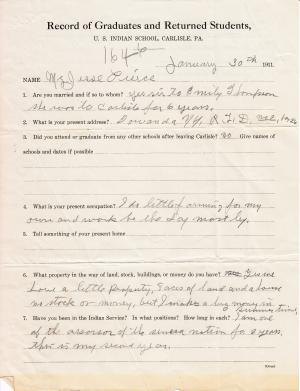 Record of Graduates and Returned Students,
U. S. INDIAN SCHOOL, CARLISLE, PA.
1646
January 30th 1911.
NAME Mr Jesse Pierce
1. Are you married and if so to whom? yes sir to Emily Thompson
she went to Carlisle for 6 years.
2. What is your present address? Gowanda N.Y. R.F.D.
3. Did you attend or graduate from any other schools after leaving Carlisle? no Give names of
schools and dates if possible
4. What is your present occupation? I do little farming for my
own and work by the day mostly.
5. Tell something of your present home
6. What property in the way of land, stock, buildings, or money do you have? Yes we
have a little property, acres of land and a house
no stock or money, but I make a big money in
7. Have you been in the Indian Service? In what positions? How long in each? I am one
of the assessor of the seneca nation for 2 years.
this is my second year.